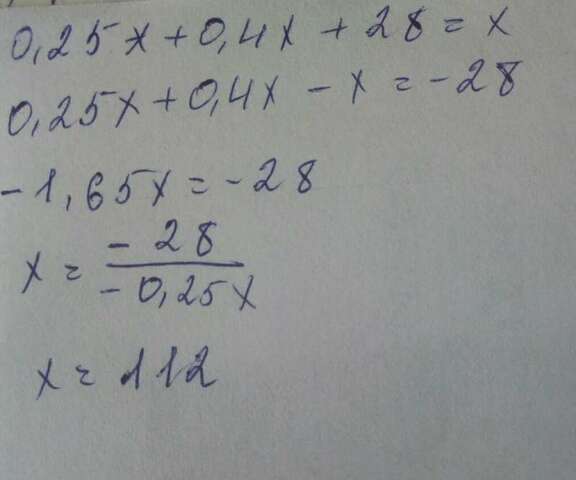 0,25x + 0,4x + 28 = x
0,25x + 0,4x - x = -28
-1,65x = -28
x = -28 / -0,25x
x = 112